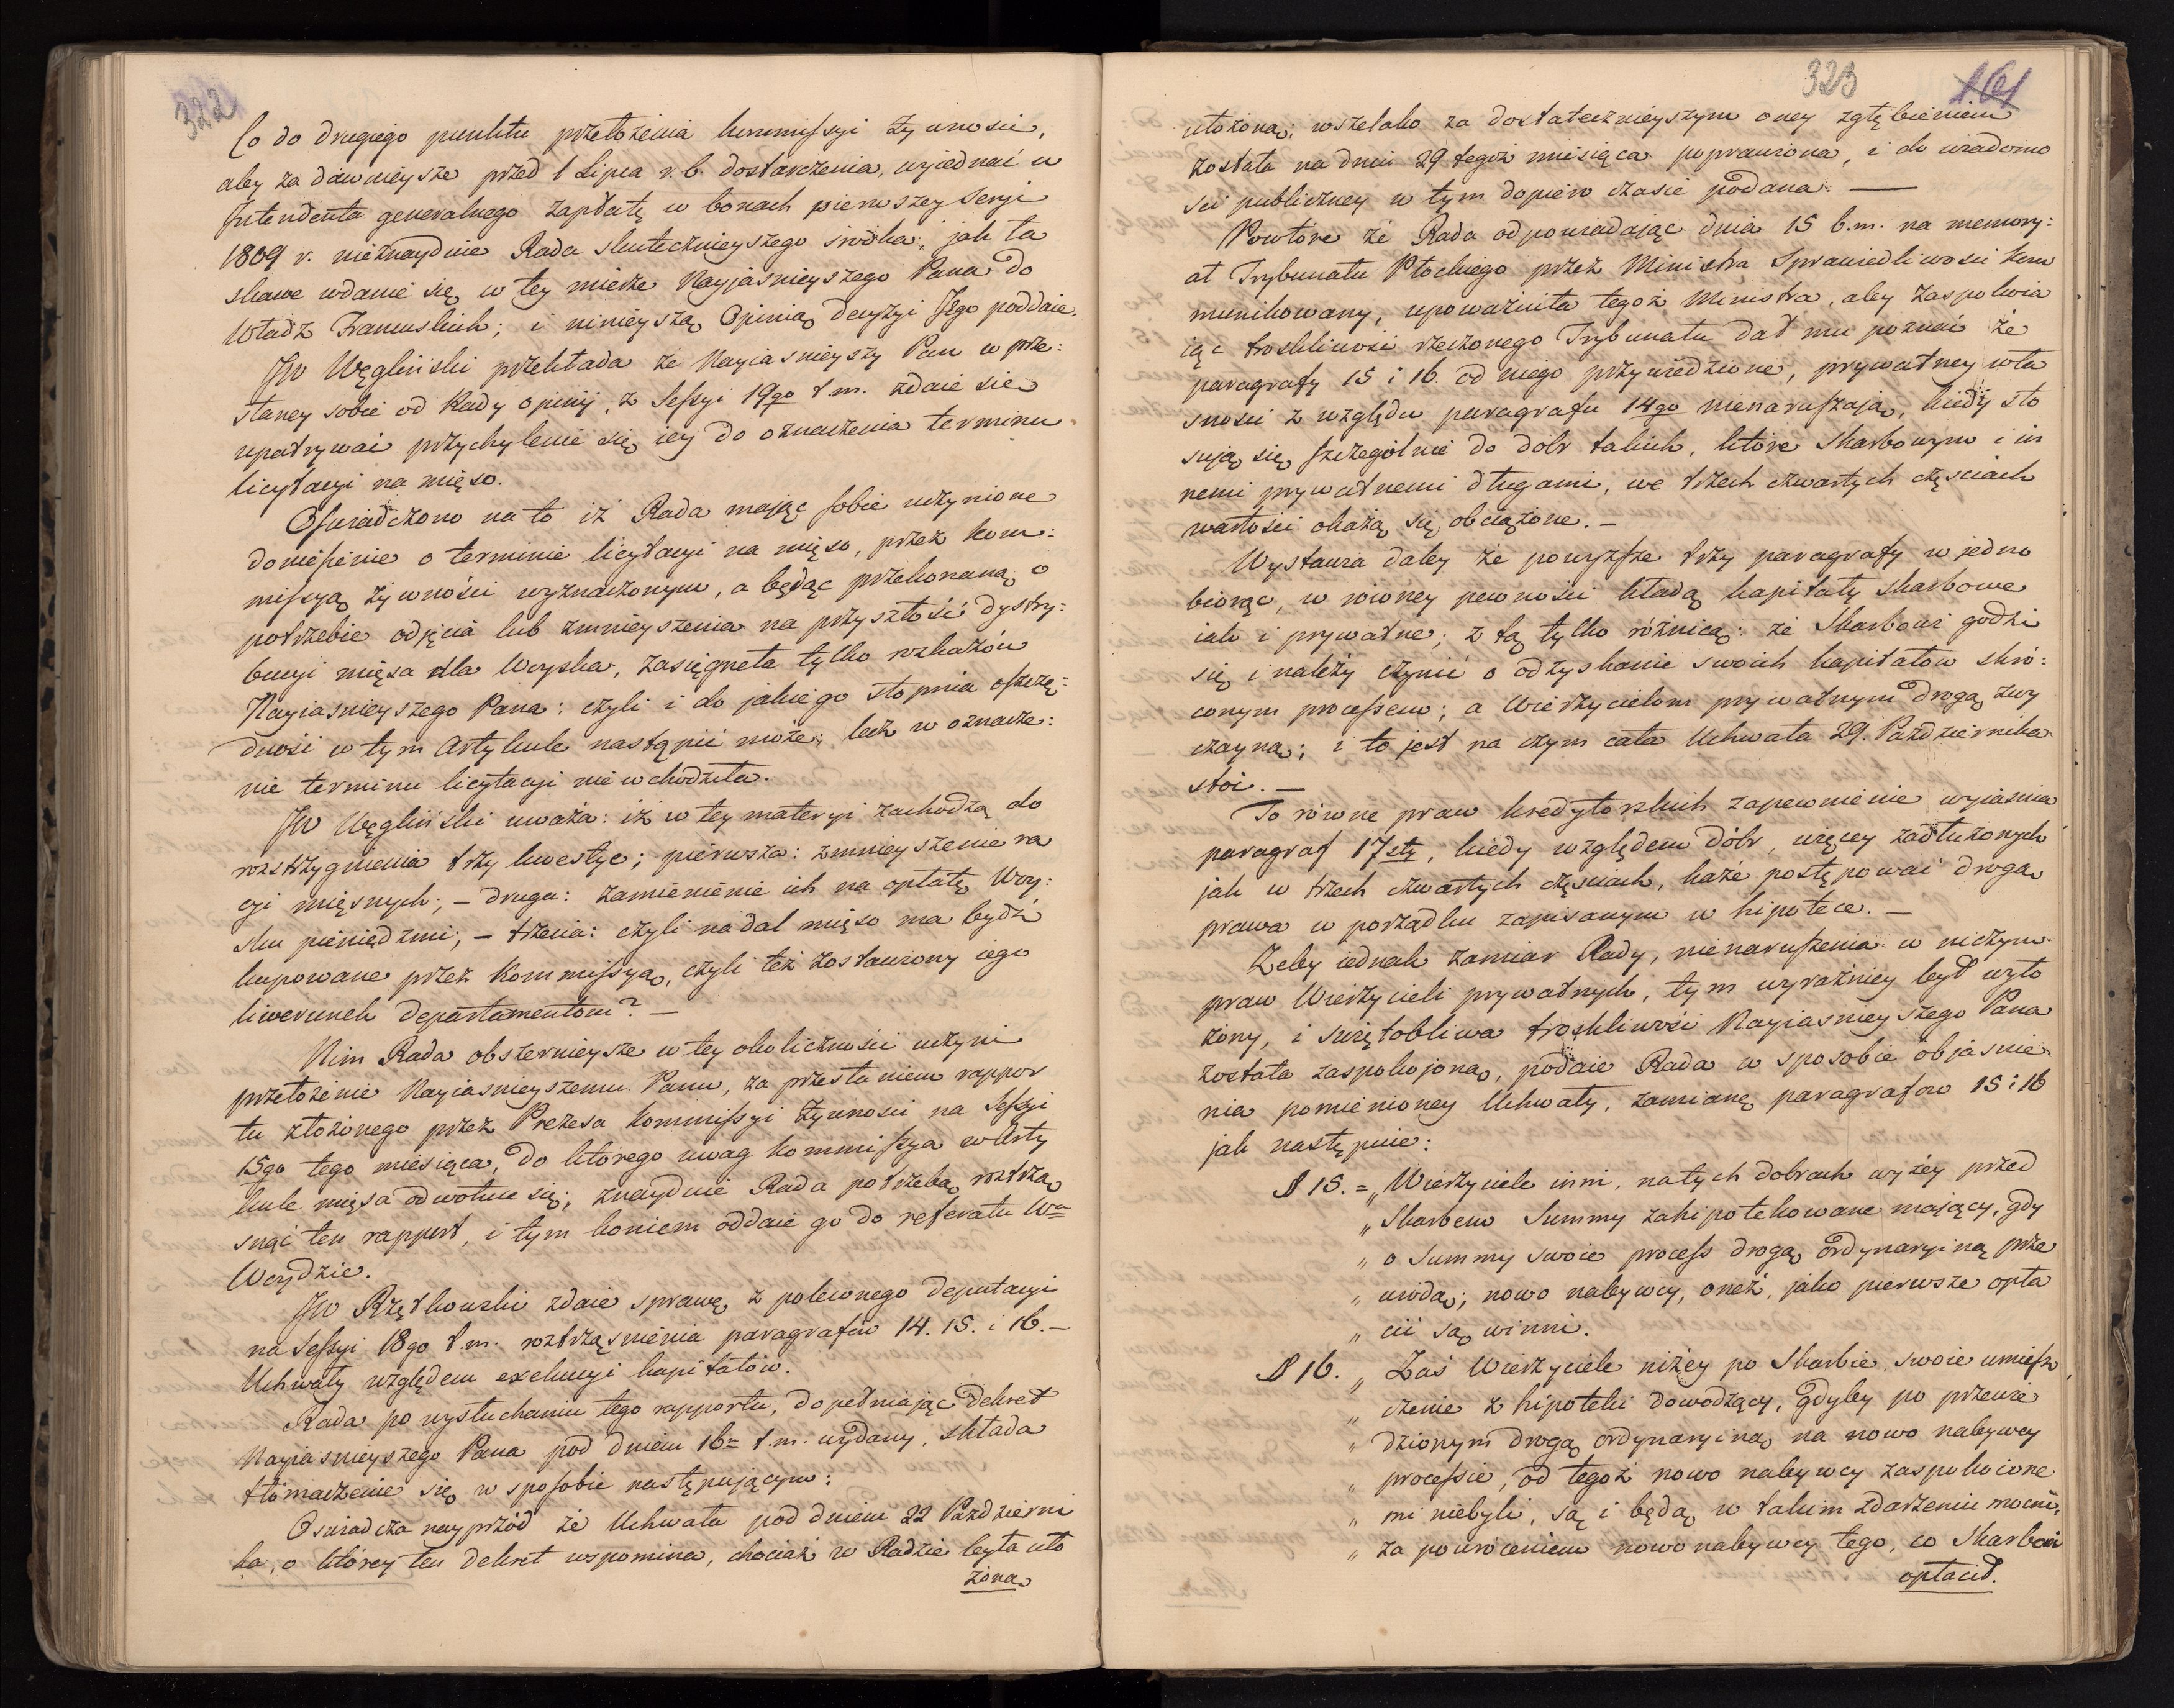 322
Co do drugiego punktu przełożenia kommissyi żywnosci,
aby za dawnieysze przed 1 Lipca r. b. dostarczenia, wyjednać u
Intendenta generalnego zapłatę w bonach pierwszey Seryi
1809 r. nieznayduie Rada skutecznieyszego śrzodka, jak ła
skawe wdanie się w tey mierze Nayjasnieyszego Pana do
Władz Francuskich; i ninieyszą Opinią decyzyi Jego poddaie.
JW Węgliński przekłada że Nayiasnieyszy Pan w prze:
słaney sobie od Rady opinij, z Sessyi 19go t. m. zdaie się
upatrywać przychylenie się iey do oznaczenia terminu
licytacyi na mięso.
Oświadczono na to iż Rada mając sobie uczynione
doniesienie o terminie licytacyi na mięso, przez kom:
missyą żywności wyznaczonym, a będąc przekonaną o
potrzebie odjęcia lub zmnieyszenia na przyszłość dystry:
bucyi mięsa dla Woyska, zasięgneła tylko rozkazów
Nayiasnieyszego Pana: czyli i do jakiego stopnia oszczę:
dność w tym Artykule nastąpić może; lecz w oznacze:
nie terminu licytacyi nie wchodziła.
JW Węgliński uważa: iż w tey materyi zachodzą do
rozstrzygnienia trzy kwestye; pierwsza: zmnieyszenie ra
cyi mięsnych; – druga: zamienienie ich na opłatę Woy:
sku pieniędzmi; – trzecia: czyli nadal mięso ma bydź
kupowane przez Kommissyą, czyli też zostawiony iego
liwerunek departamentom? –
Nim Rada obszernieysze w tey okoliczności uczyni
przełożenie Nayiasnieyszemu Panu, za przesłaniem rappor
tu złożonego przez Prezesa Kommissyi Żywnosci na Sessyi
15go tego miesiąca, do którego uwag kommissya w Arty
kule mięsa odwołuie się; znayduie Rada potrzebą roztrzą
snąć ten rapport, i tym końcem oddaie go do referatu Wu
Woydzie.
JW Rzętkowski zdaie sprawę z poleconego deputacyi
na Sessyi 18go t. m. roztrząsnienia paragrafów 14. 15. i 16. –
Uchwały względem exekucyi kapitałów.
Rada po wysłuchaniu tego rapportu, dopełniając Dekret
Nayiasnieyszego Pana pod dniem 16m t. m. wydany, składa
tłómaczenie się w sposobie następującym:
Oswiadcza nayprzód że Uchwała pod dniem 22 Październi
ka, o którey ten dekret wspomina, chociaż w Radzie była uło
żona
323
161
ułożoną; wszelako za dostatecznieyszym oney zgłębieniem
została na dniu 29 tegoż miesiąca poprawioną, i do wiadomo
ści publiczney w tym dopiero czasie podana. —
Powtóre że Rada odpowiadając dnia 15 b. m. na memory:
ał Trybunału Płockiego przez Ministra Sprawiedliwosci kom
munikowany, upoważniła tegoż Ministra, aby zaspokoia
iąc troskliwość rzeczonego Trybunału dał mu poznać że
paragrafy 15 i 16 od niego przywiedzione, prywatney wła
snosci z względu paragrafu 14go nienaruszaią, kiedy sto
sują się szczególnie do dobr takich, które Skarbowym i in
nemi prywatnemi długami, we trzech czwartych częsciach
wartości okażą się obciążone. –
Wystawia daley że powyższe trzy paragrafy w jedno
biorąc, w równey pewności kładą kapitały skarbowe
iak i prywatne; z tą tylko różnicą: że Skarbowi godzi
się i należy czynić o odzyskanie swoich kapitałow skró:
conym processem; a Wierzycielom prywatnym drogą zwy
czayną; i to jest na czym cała Uchwała 29. Października
stoi. –
To równe praw kredytorskich zapewnienie wyiaśnia
paragraf 17sty, kiedy względem dóbr, więcey zadłużonych
jak w trzech czwartych częściach, każe postępować drogą
prawa w porządku zapisanym w hipotece. –
Żeby iednak zamiar Rady, nienaruszenia w niczym
praw Wierzycieli prywatnych, tym wyraźniey był wyło
żony, i świętobliwa troskliwość Nayiasnieyszego Pana
została zaspokojoną, podaie Rada w sposobie objasnie
nia pomienioney Uchwały, zamianę paragrafow 15 i 16
jak następuie:
§ 15. = „Wierzyciele inni, na tych dobrach wyżey przed
„Skarbem Summy zahipotekowane mający, gdy
„ o Summy swoie process drogą ordynaryiną prze
„ wiodą; nowo nabywcy, oneż, jako pierwsze opła
„ cić są winni.
§ 16. „ Zaś Wierzyciele niżey po Skarbie, swoie umiesz
„ czenie z hipoteki dowodzący, gdyby po przewie
„ dzionym drogą ordynaryiną na nowo nabywcy
„ processie, od tegoż nowo nabywcy zaspokoione
„ mi niebyli, są i będą w takim zdarzeniu mocni,
„ za powróceniem nowonabywcy tego, co Skarbowi
opłacił.